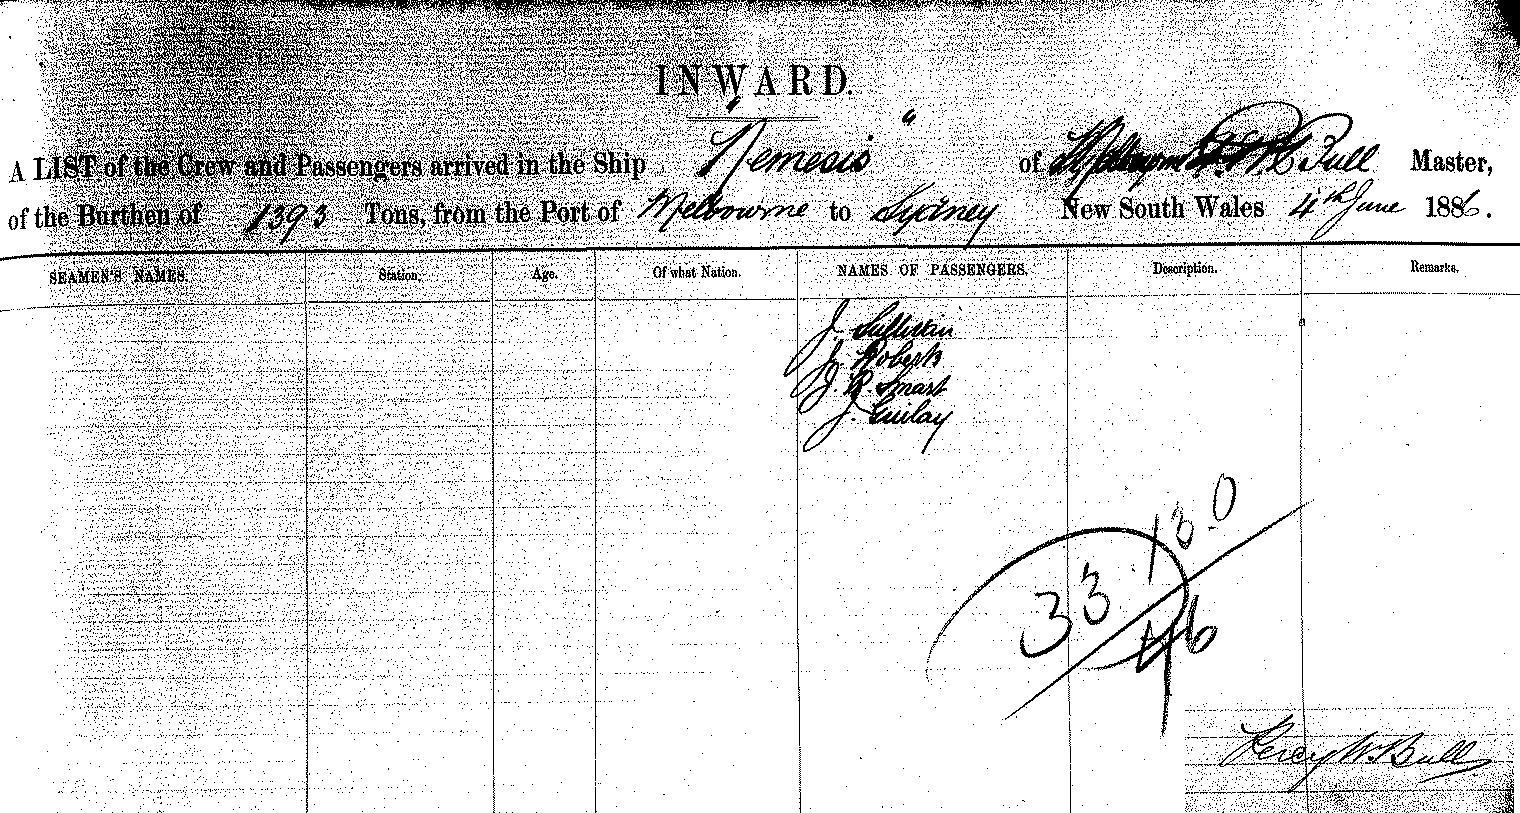 INWARD.
A LIST of the Crew and Passengers arrived in the Ship "Nemesis" of P. W. Bull Master,
of the Burthen of 1393 Tons, from the Port of Melbourne to Sydney New South Wales 4th June 1886.
SEAMEN'S NAMES. Station. Age. Of what Nation. NAMES OF PASSENGERS. Description. Remarks.
J. Sullivan
J. Roberts
J. R. Smart
J. Gurlay
13.0
33
46
Percy W. Bull